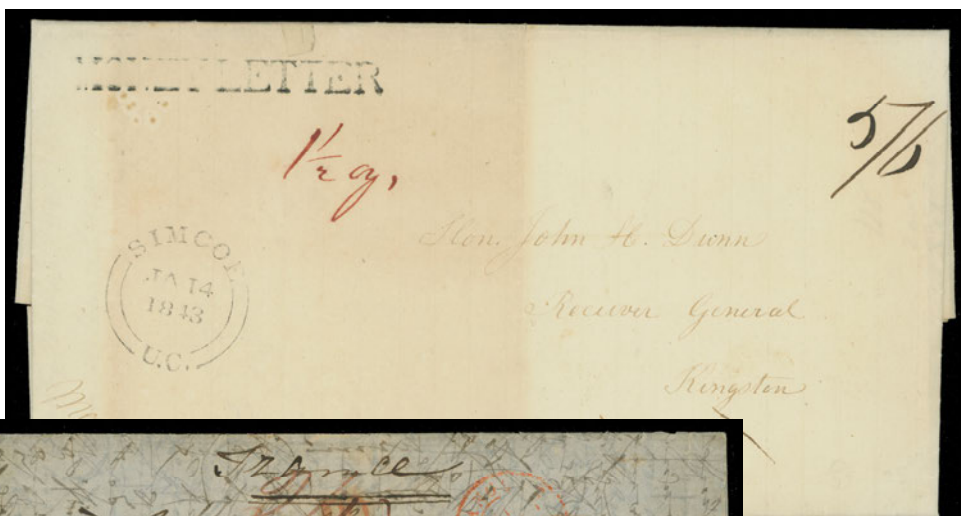 MONEY LETTER
1½ oz,
5/6
SIMCOE
JA 14
1843
U.C.
Hon. John H. Dunn
Receiver General
Kingston
France